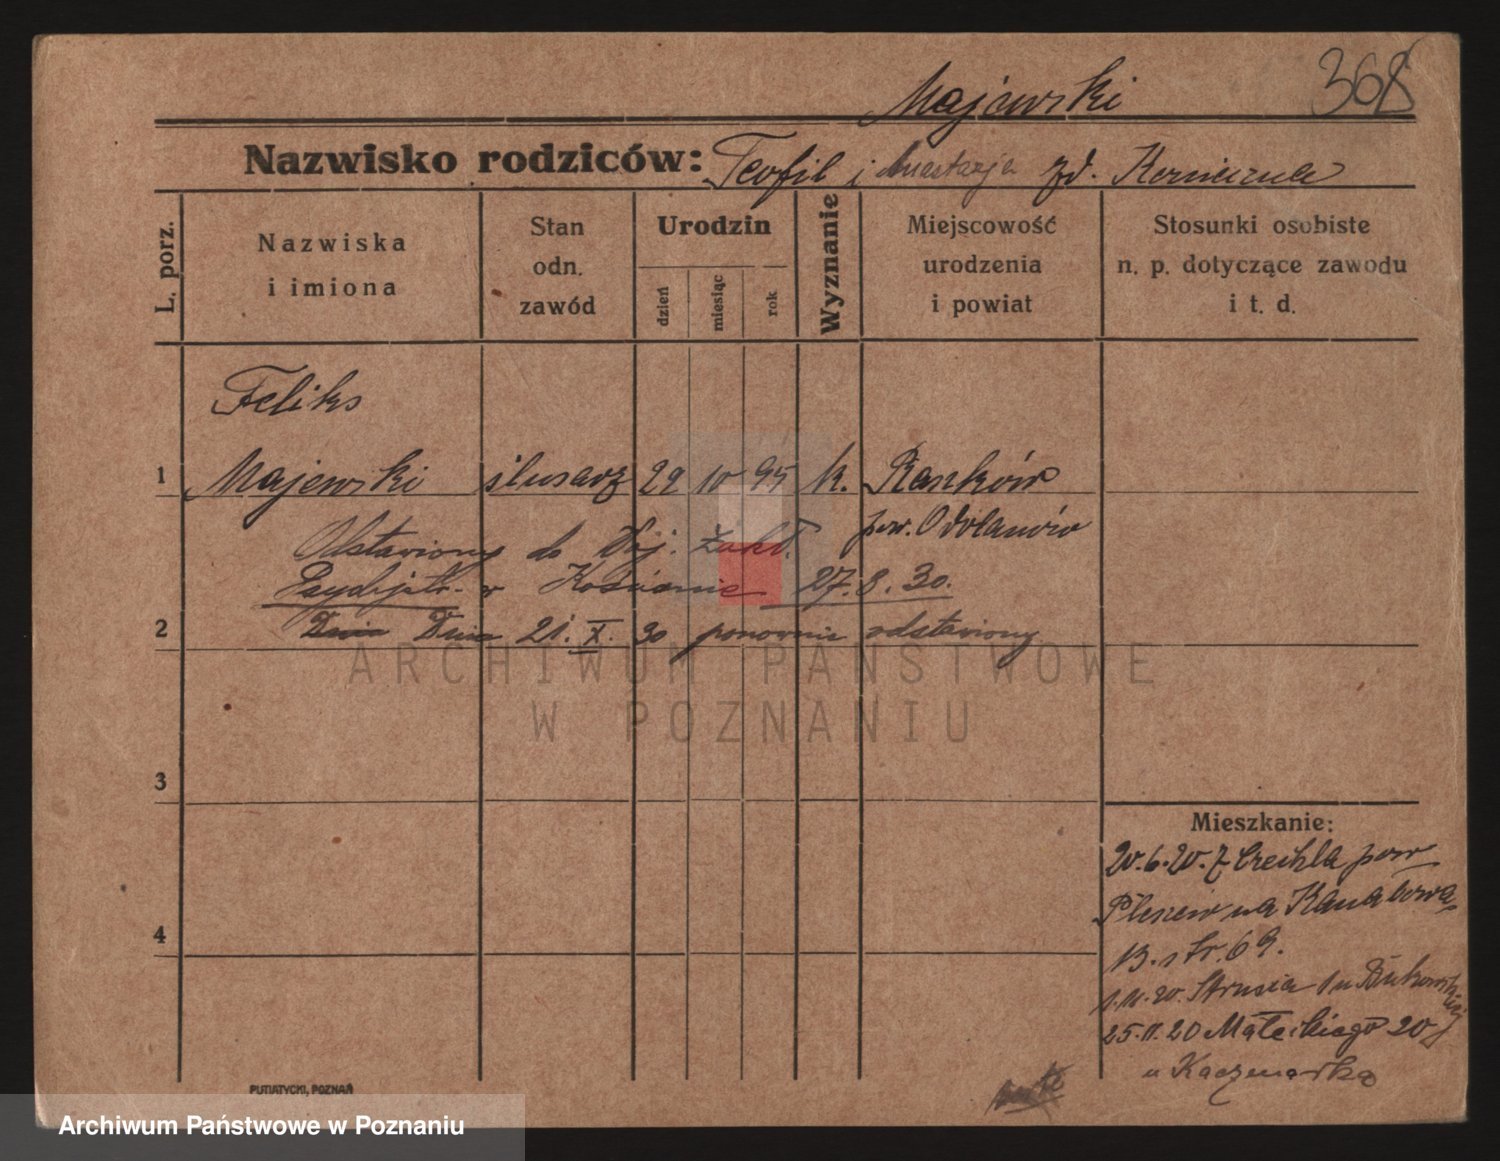 Majewski 368
Nazwisko rodziców: Teofil i Anastazja zd.
L. porz.
Nazwiska i imiona
Stan odn. zawód
Urodzin
dzień
miesiąc
rok
Wyznanie
Miejscowość urodzenia i powiat
Stosunki osobiste n. p. dotyczące zawodu i t. d.
Feliks
1 Majewski ślusarz 29 10 95 k. Raszków
pow. Odolanów
Odstawiony do Woj. Zakł.
Psychjatr. w Kościanie 27.8.30.
2 Dnia Dnia 21. X. 30 ponownie odstawiony
ARCHIWUM PAŃSTWOWE
W POZNANIU
3
Mieszkanie:
20.6.20. z pow
Pleszew na Kanałowa
4
13. str. 69.
1.11.20. Strusia 1 u Bukowskiej
25.11.20 Małeckiego 20
u Kaczmarka
PUTIATYCKI, POZNAŃ
Archiwum Państwowe w Poznaniu